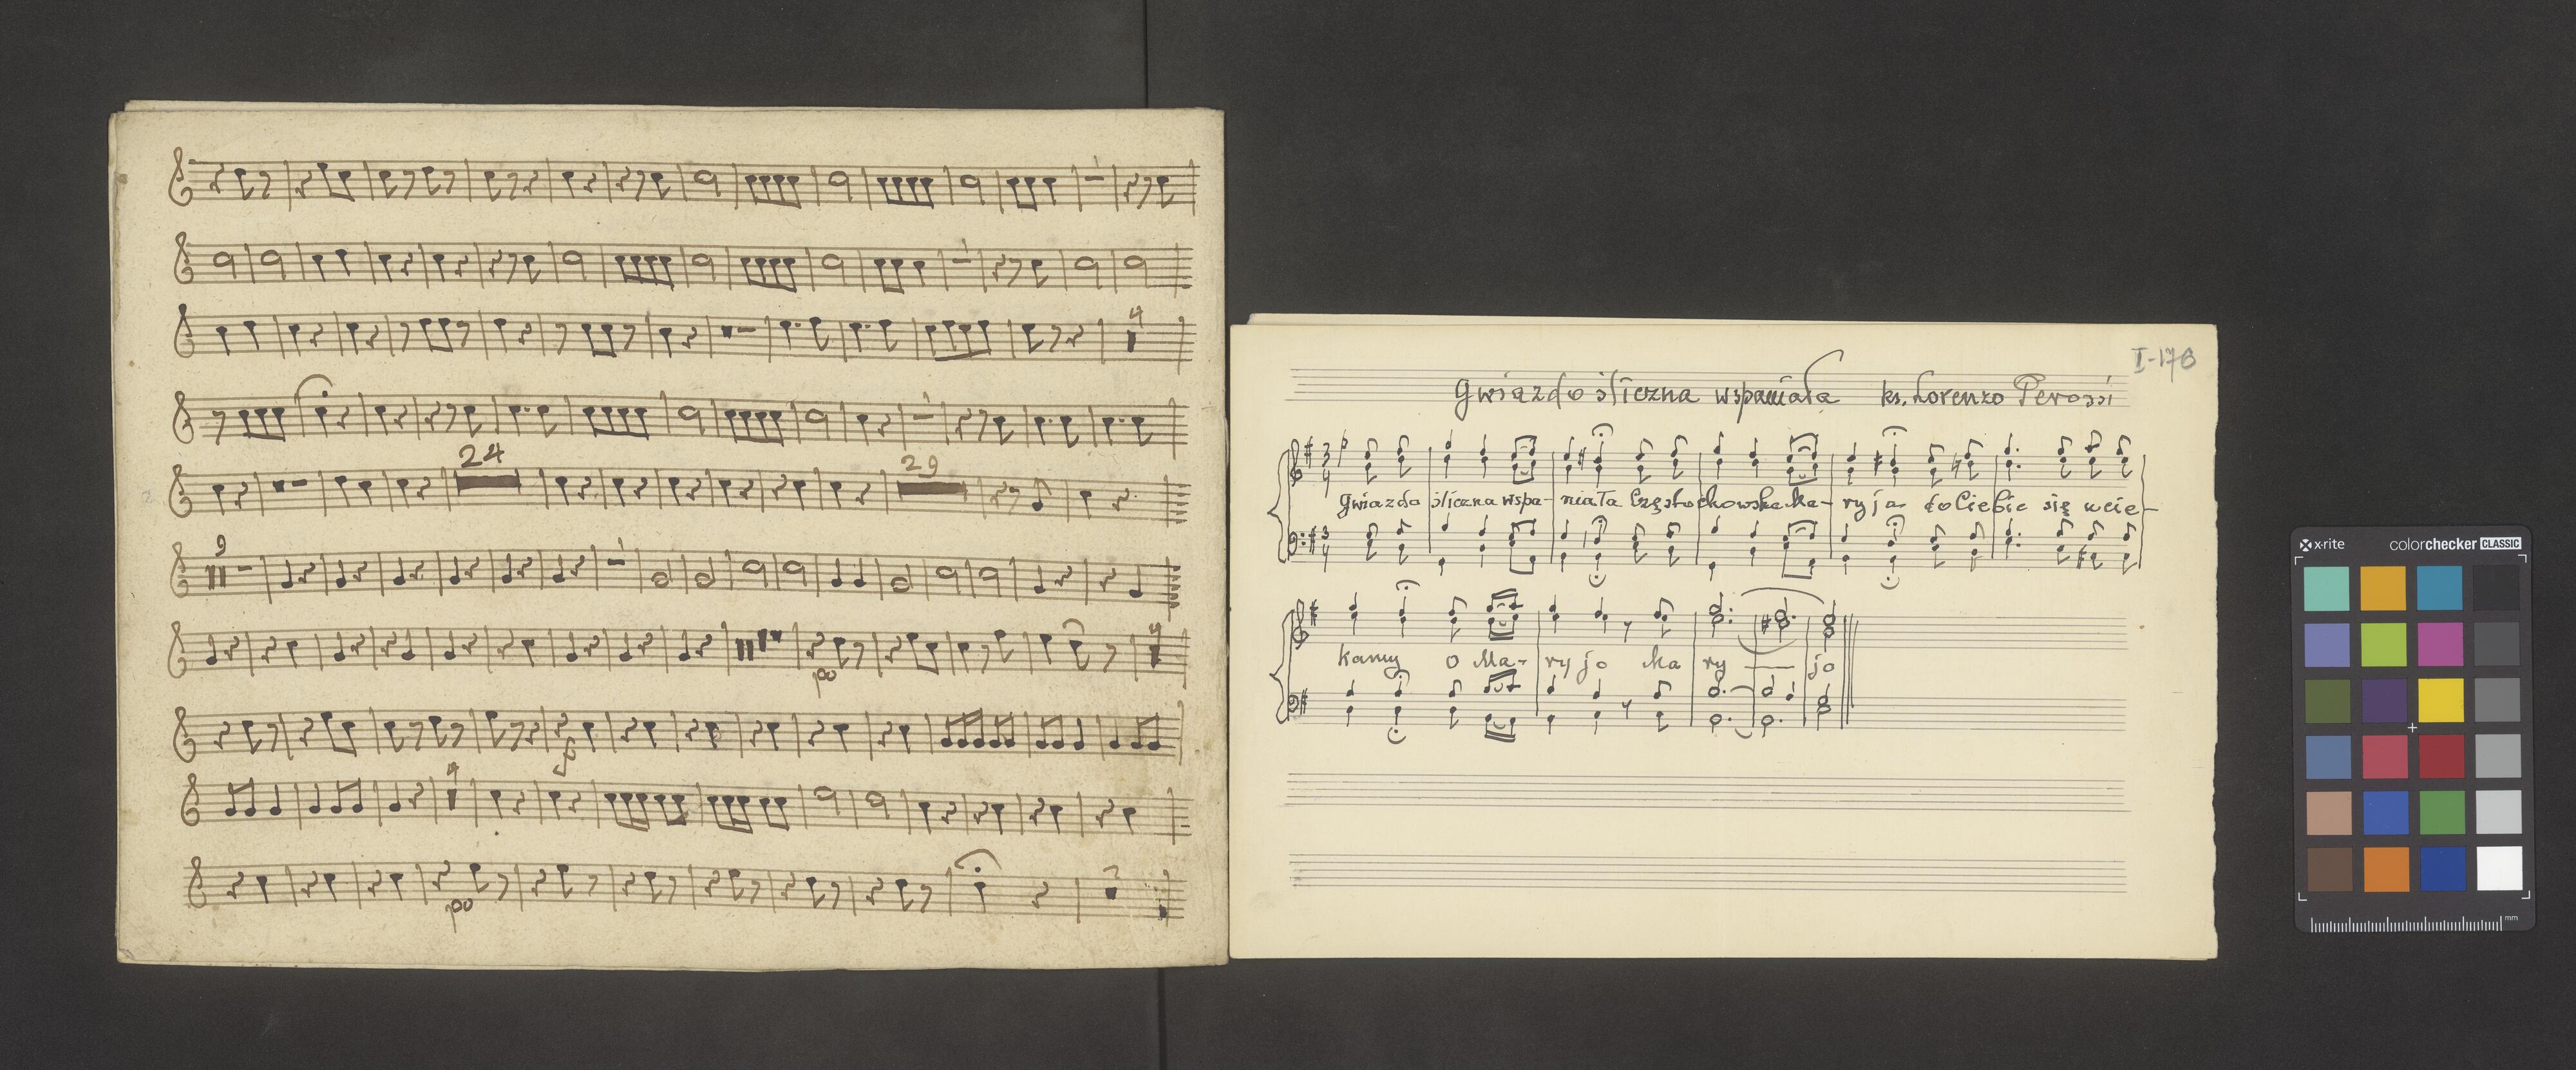 4
24
29
9
po
4
4
po
I-178
Gwiazdo śliczna wspaniała ks. Lorenzo Perossi
3
4
Gwiazdo śliczna wspa- niała Częstochowska Ma- ryja do Ciebie się ucie-
3
4
kamy o Ma- ryjo Ma ry — jo
x-rite colorchecker CLASSIC
mm